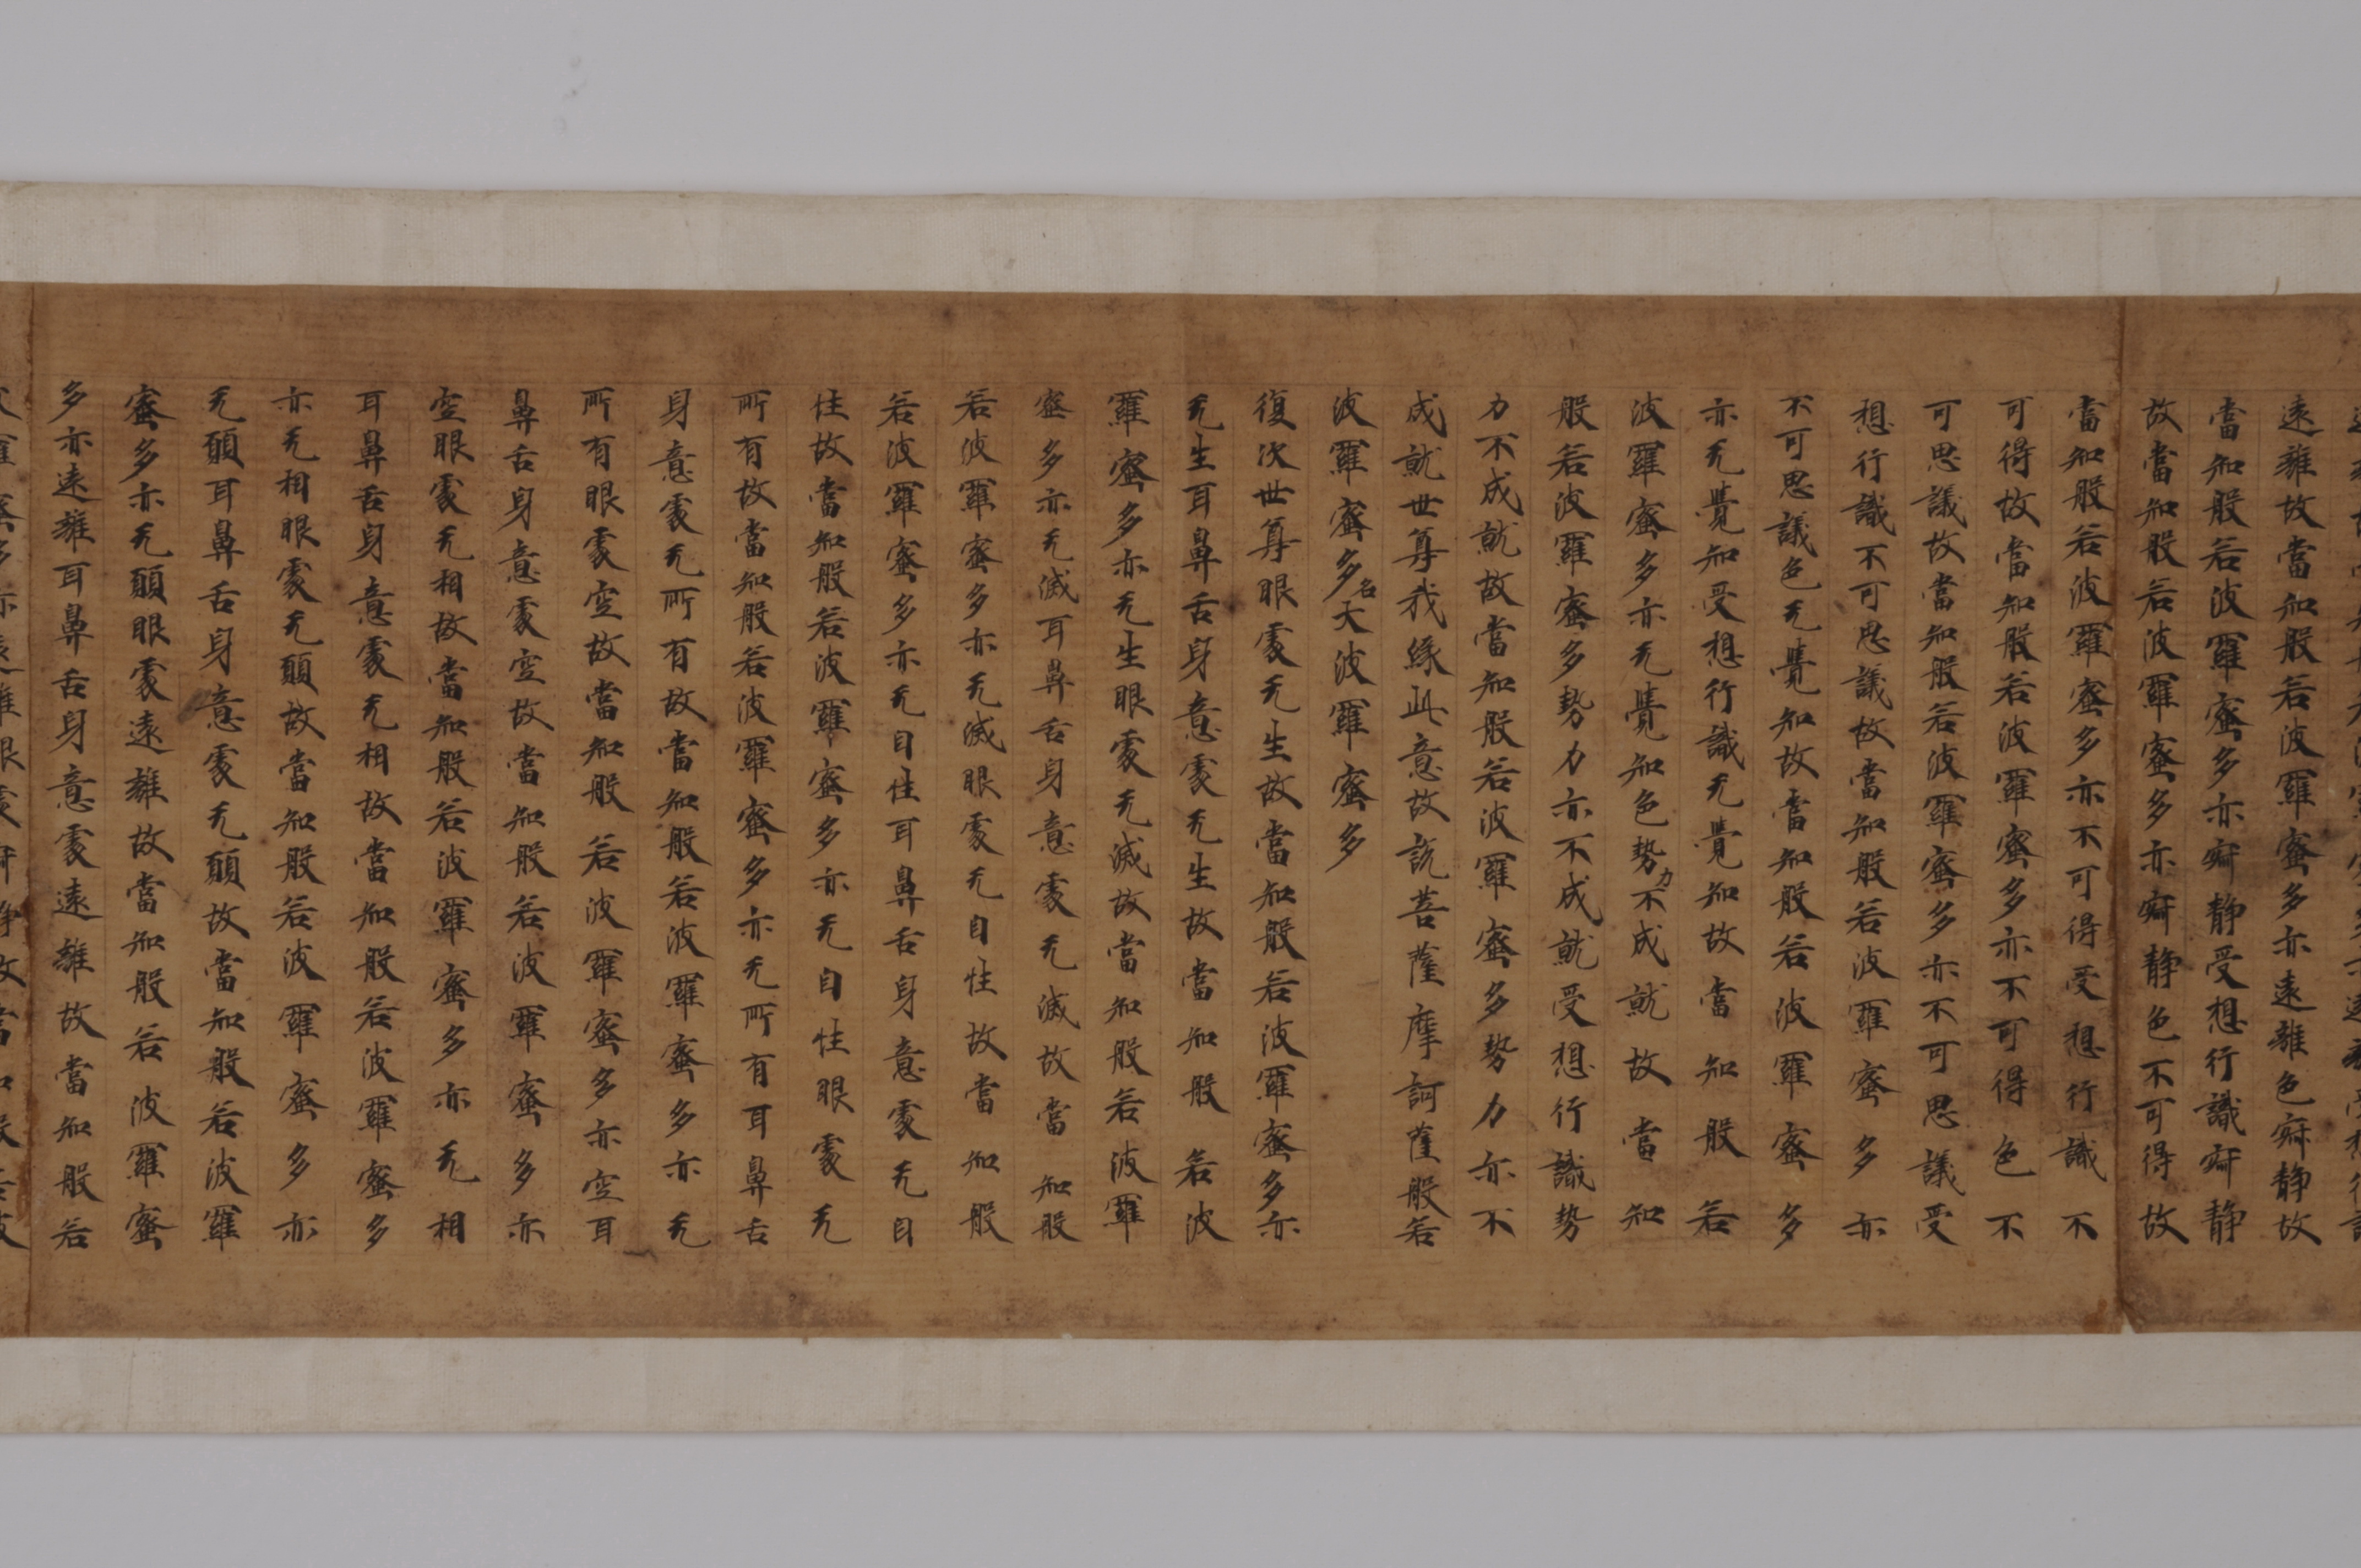 遠離故當知般若波羅蜜多亦遠離色寂静故
當知般若波羅蜜多亦寂静受想行識寂静
故當知般若波羅蜜多亦寂静色不可得故
當知般若波羅蜜多亦不可得受想行識不
可得故當知般若波羅蜜多亦不可得色不
可思議故當知般若波羅蜜多亦不可思議受
想行識不可思議故當知般若波羅蜜多亦
不可思議色无覺知故當知般若波羅蜜多
亦无覺知受想行識无覺知故當知般若
波羅蜜多亦无覺知色勢力不成就故當知
般若波羅蜜多勢力亦不成就受想行識勢
力不成就故當知般若波羅蜜多勢力亦不
成就世尊我緣此意故說菩薩摩訶薩般若
波羅蜜多名大波羅蜜多
復次世尊眼處无生故當知般若波羅蜜多亦
无生耳鼻舌身意處无生故當知般若波
羅蜜多亦无生眼處无滅故當知般若波羅
蜜多亦无滅耳鼻舌身意處无滅故當知般
若波羅蜜多亦无滅眼處无自性故當知般
若波羅蜜多亦无自性耳鼻舌身意處无自
性故當知般若波羅蜜多亦无自性眼處无
所有故當知般若波羅蜜多亦无所有耳鼻舌
身意處无所有故當知般若波羅蜜多亦无
所有眼處空故當知般若波羅蜜多亦空耳
鼻舌身意處空故當知般若波羅蜜多亦
空眼處无相故當知般若波羅蜜多亦无相
耳鼻舌身意處无相故當知般若波羅蜜多
亦无相眼處无願故當知般若波羅蜜多亦
无願耳鼻舌身意處无願故當知般若波羅
蜜多亦无願眼處遠離故當知般若波羅蜜
多亦遠離耳鼻舌身意處遠離故當知般若